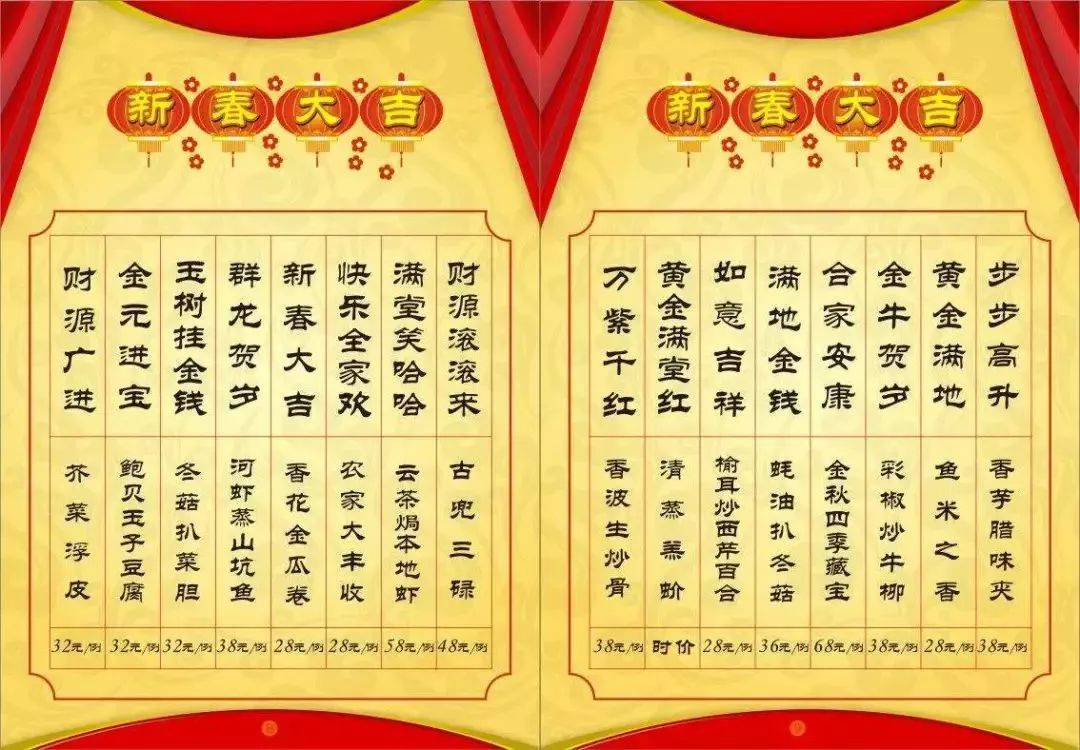 新春大吉
财源广进
金元进宝
玉树挂金钱
群龙贺岁
新春大吉
快乐全家欢
满堂笑哈哈
财源滚滚来
芥菜浮皮
鲍贝玉子豆腐
冬菇扒菜胆
河虾蒸山坑鱼
香花金瓜卷
农家大丰收
云茶焗本地虾
古兜三碌
32元/例
32元/例
32元/例
38元/例
28元/例
28元/例
58元/例
48元/例
新春大吉
万紫千红
黄金满堂红
如意吉祥
满地金钱
合家安康
金牛贺岁
黄金满地
步步高升
香波生炒骨
清蒸羔蚧
榆耳炒西芹百合
蚝油扒冬菇
金秋四季藏宝
彩椒炒牛柳
鱼米之香
香芋腊味夹
38元/例
时价
28元/例
36元/例
68元/例
38元/例
28元/例
38元/例